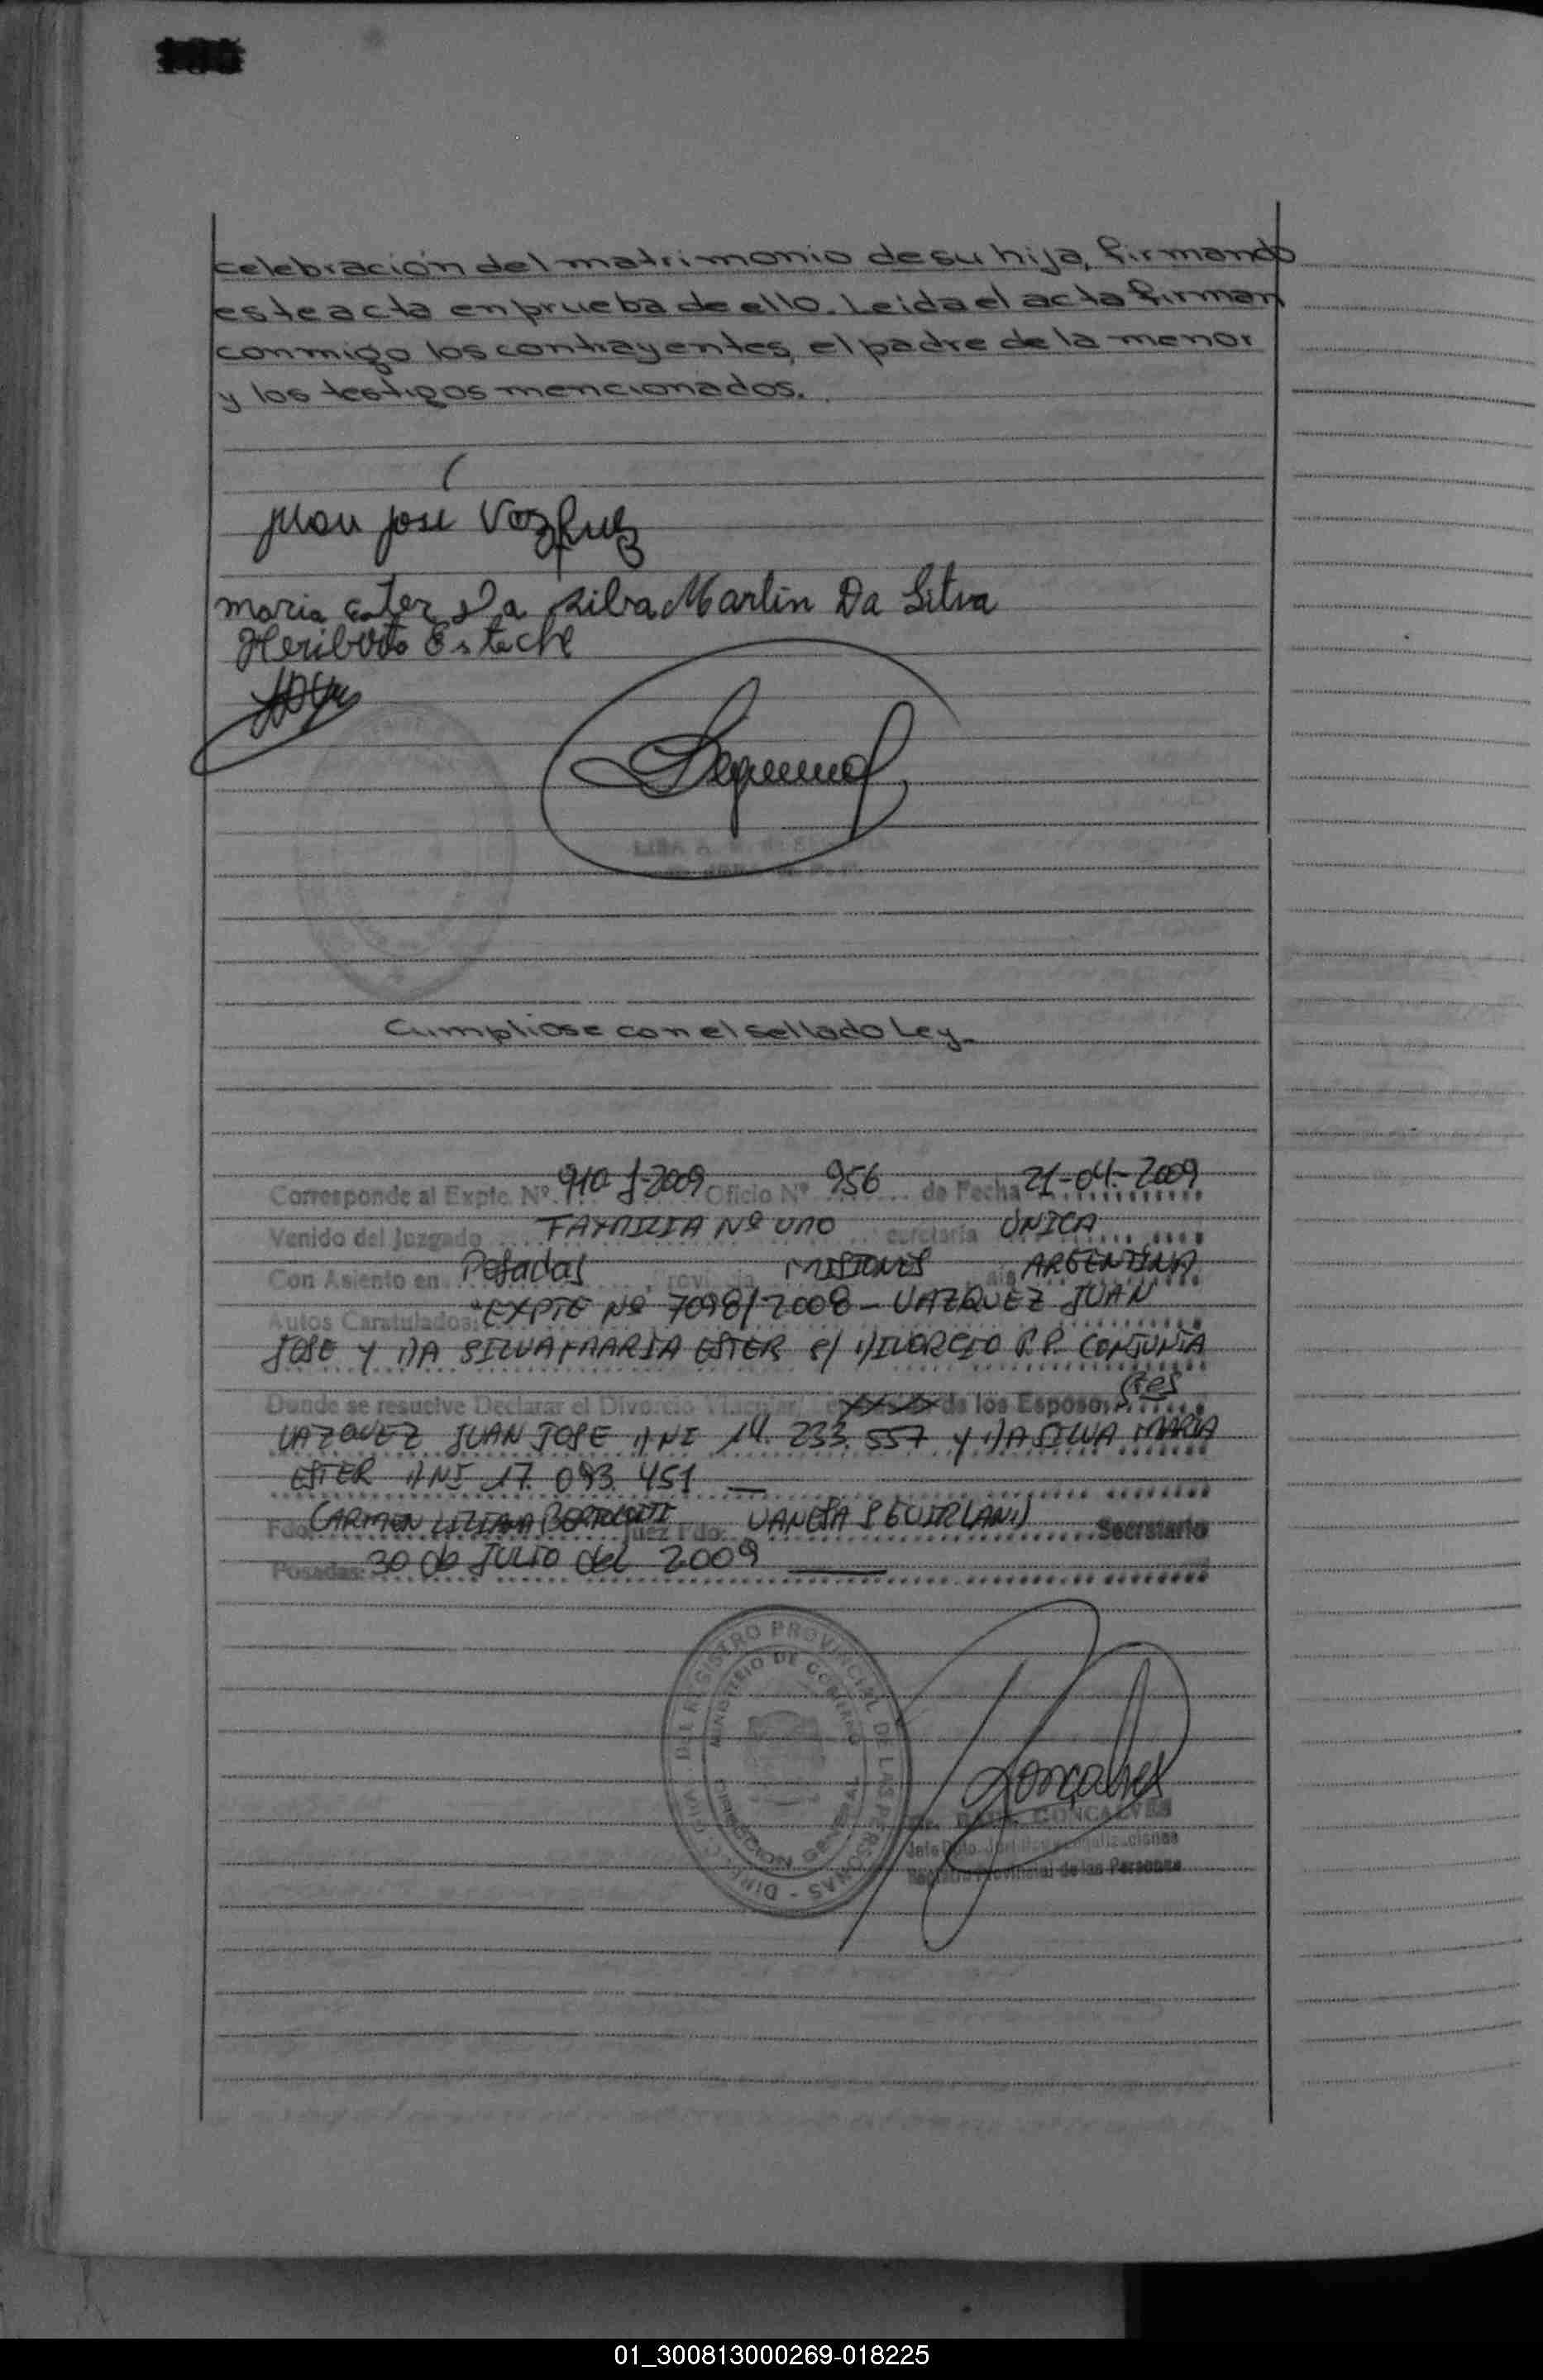 celebración del matrimonio de su hija, firmando
este acta en prueba de ello. Leida el acta firman
conmigo los contrayentes, el padre de la menor
y los testigos mencionados.
Juan jose Vazquez
maria Ester Da Silba Martin Da Silva
Heriberto Esteche
Cumpliose con el sellado Ley.
Corresponde al Expte. Nº 910-J-2009 Oficio Nº 956 de Fecha 21-04-2009
Venido del Juzgado FAMILIA Nº UNO Secretaría ÚNICA
Con Asiento en Posadas Provincia MISIONES País ARGENTINA
Autos Caratulados: "EXPTE Nº 7098/2008 - VAZQUEZ JUAN
JOSE Y DA SILVA MARIA ESTER S/ DIVORCIO P.P. CONJUNTA
Donde se resuelve Declarar el Divorcio Vincular de los Esposos
VAZQUEZ JUAN JOSE DNI 14.233.557 Y DA SILVA MARIA
ESTER DNI 17.093.451
Fdo: CARMEN LILIANA Juez Fdo: VANESA Secretario
Posadas: 30 de JULIO del 2009
DIREC. GRAL. DEL REGISTRO PROVINCIAL DE LAS PERSONAS
MINISTERIO DE GOBIERNO
DIRECCION GENERAL
Gonçalves
GONCALVES
Jefe Dpto.
Registro Provincial de las Personas
01_300813000269-018225